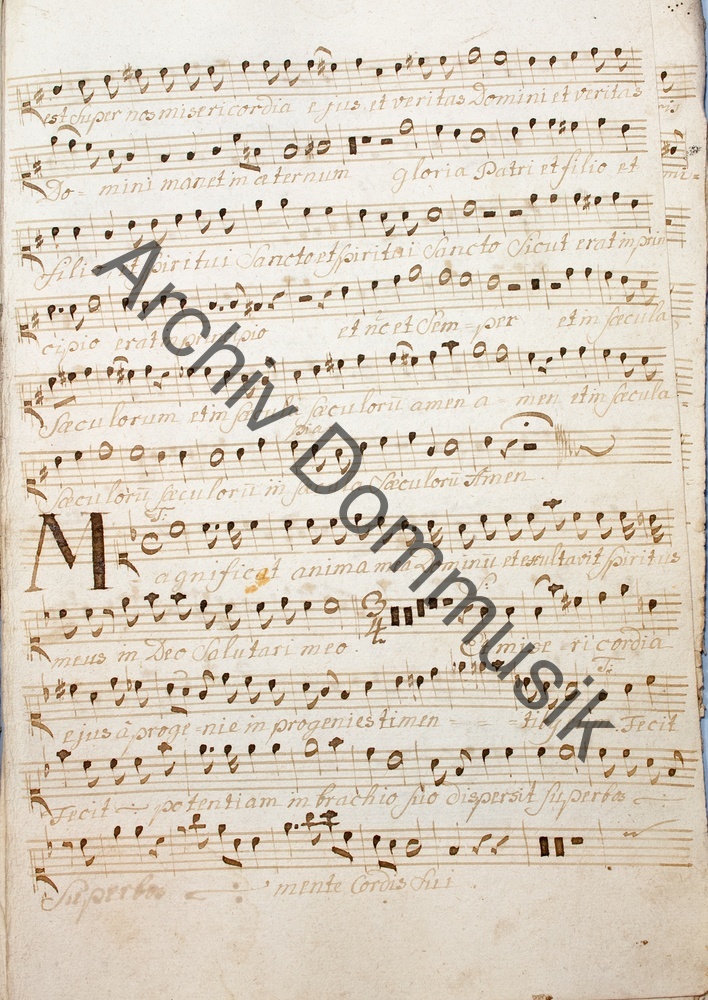 est super nos misericordia ejus et veritas Domini et veritas
Do- mini manet in æternum gloria Patri et filio et
filio et Spiritui Sancto et Spiritui Sancto Sicut erat in prin
cipio erat in principio et nc̄ et Sem- per et in sæcula
Sæculorum et in sæculorū amen a- men et in sæcula
Sæculorū sæculorū in sæcula Sæculorū Amen.
T:
Magnificat anima mea Dominū et exultavit Spiritus
3/4
meus in Deo Salutari meo. Et mise- ricordia
T:
ejus à proge- nie in progenies timen - - - Fecit
Fecit potentiam in brachio suo dispersit superbos
Superbos mente Cordis sui.
Archiv Dommusik